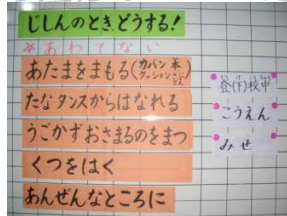 じしんのとき、どうする!
☆あわてない
あたまをまもる(カバン 本 クッション など)
たなタンスからはなれる
うごかずおさまるのをまつ
くつをはく
あんぜんなところに
こうえん
みせ